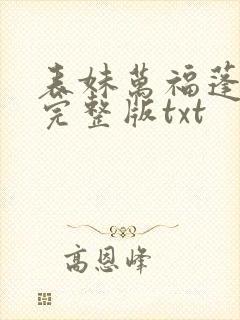 表妹萬福蓬
完整版txt
高恩峰